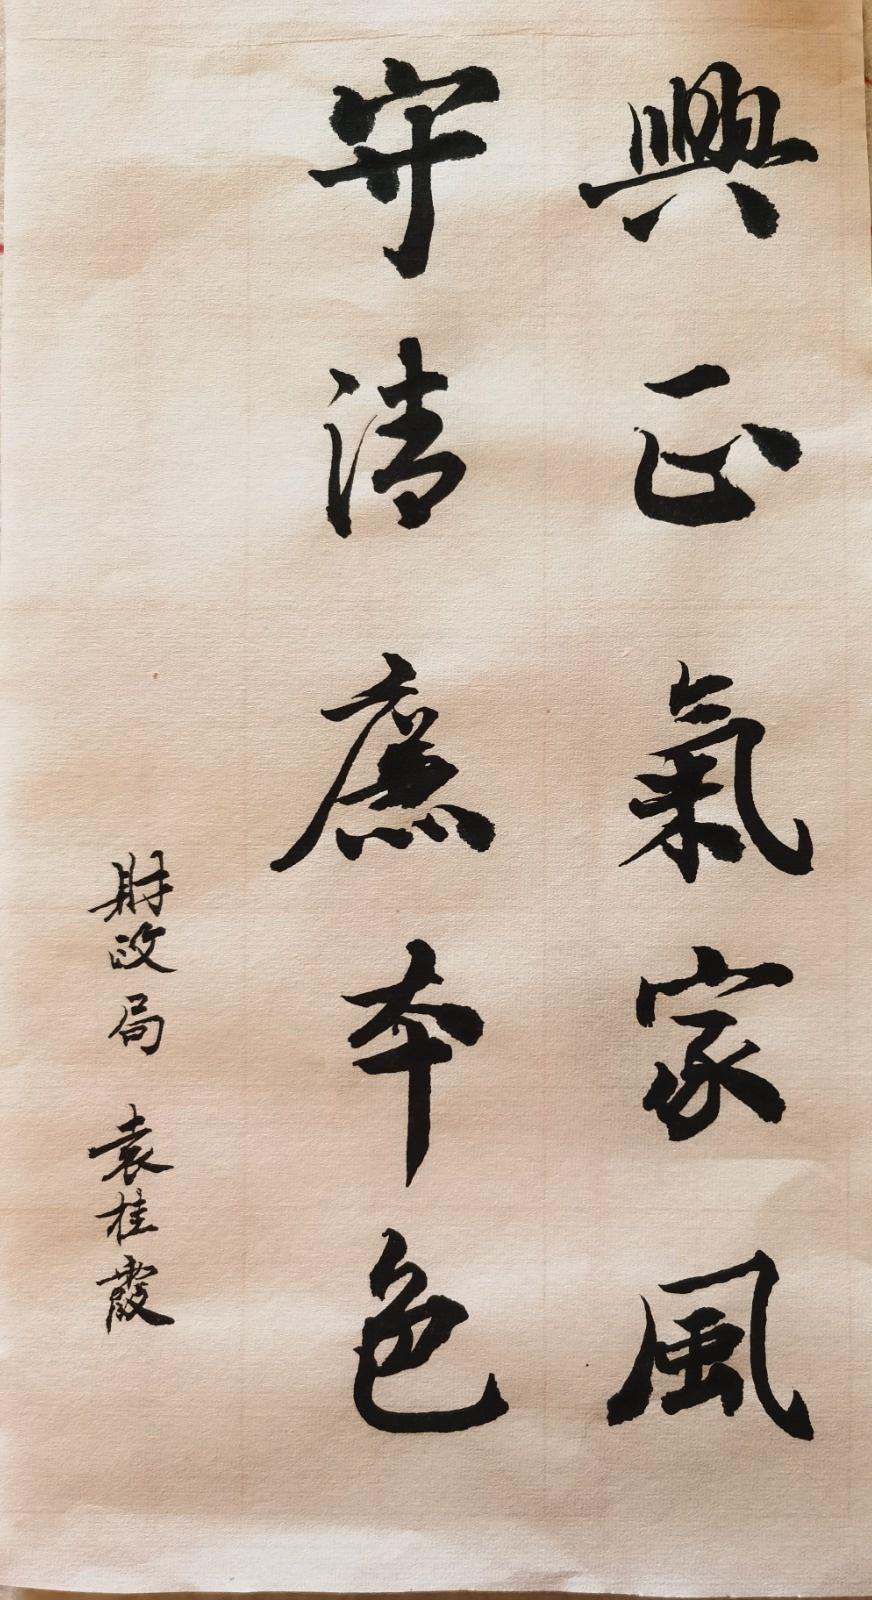 興正氣家風
守清廉本色
財政局 袁桂霞